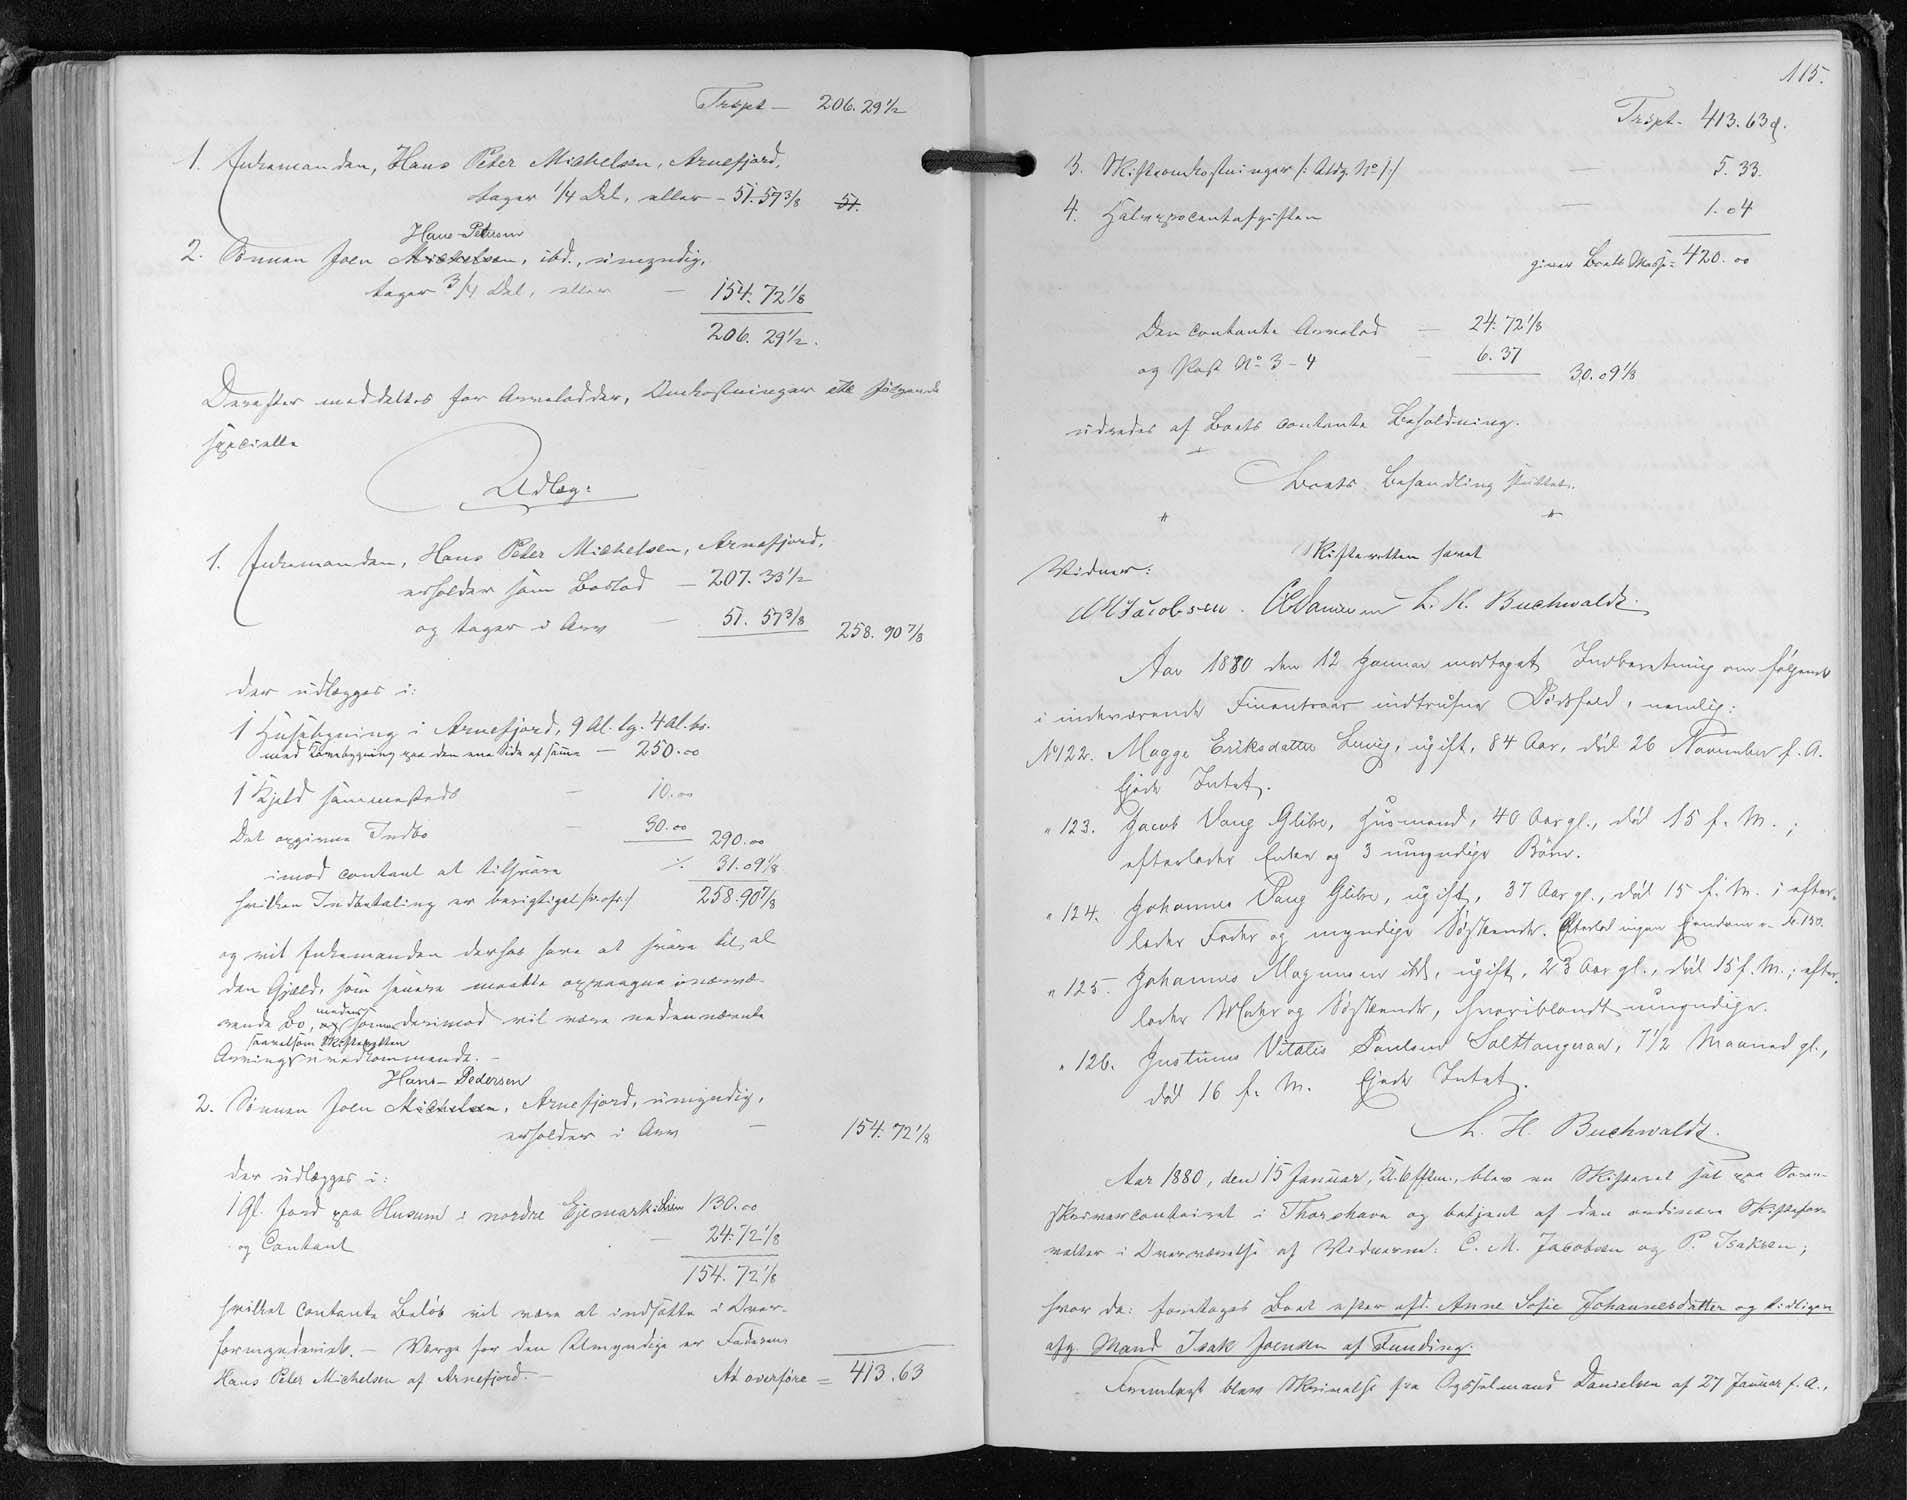 Trspt — 206. 29 1/2
1. Enkemanden, Hans Peter Michelsen, Arnefjord,
tager 1/4 Del, eller — 51. 57 3/8 51.
Hans-Petersen
2. Sønnen Joen Michelsen, ibd., umyndig,
tager 3/4 Del, eller — 154. 72 1/8
206. 29 1/2.
Derefter meddeltes for Arvelodder, Omkostninger etc følgende
specielle
Udlæg:
1. Enkemanden, Hans Peter Michelsen, Arnefjord,
erholder som Boslod — 207. 33 1/2
og tager i Arv — 51. 57 3/8 258. 90 7/8
der udlægges i:
1 Husebygning i Arnefjord, 9 Al. lg. 4 Al. br.
med Tørvebygning paa den ene Side af samme — 250.00
1 Kjeld sammesteds — 10.00
Det opgivne Indbo — 30.00 290.00
imod contant at tilsvare ÷ 31.09 1/8
hvilken Indbetaling er berigtiget 258.90 7/8
og vil Enkemanden derhos have at svare til al
den Gjæld, som senere maatte oppaagne i nærvæ-
rende Bo, og medens Sønnen derimod vil være nedennævnte
saavelsom Skifteretten
Arvings uvedkommende. —
Hans-Pedersen
2. Sønnen Joen Michelsen, Arnefjord, umyndig,
erholder i Arv — 154. 72 1/8
der udlægges i:
1 Gl. Jord paa Husum i nordre Ejemark 130.00
og Contant — 24. 72 1/8
154. 72 1/8
hvilket contante Beløb vil være at indsætte i Over-
formynderiet. — Værge for den Umyndige er Faderen
Hans Peter Michelsen af Arnefjord. —
At overføre = 413.63
115.
Trspt — 413.63 d.
3. Skifteomkostninger /: Udg. No 1 :/ — 5. 33.
4. Halvprocentafgiften — 1. 04
giver Boets Masse = 420. 00
Den contante Arvelod — 24. 72 1/8
og Post No 3 - 4 — 6. 37 30. 09 1/8
udredes af Boets contante Beholdning.
Boets Behandling sluttet.
Skifteretten hævet
Vidner:
Jacobsen. L. H. Buchwaldt.
Aar 1880 den 12 Januar modtaget Indberetning om følgende
i indeværende Finantsaar indtrufne Dødsfald, nemlig:
No 122. Magge Eriksdatter Leervig, ugift, 84 Aar, död 26 November f. A.
Ejede Intet.
" 123. Jacob Vang Glibre, Husmand, 40 Aar gl., död 15 f. M. ;
efterlader Enke og 3 umyndige Börn.
" 124. Johannes Vang Glibre, ugift, 37 Aar gl., död 15 f. M. ; efter-
lader Fader og myndige Söskende. Efterlod ingen Ejendom kr. 150.
" 125. Johannes Magnussen ibd., ugift, 23 Aar gl., död 15 f. M. ; efter-
lader Moder og Söskende, hvoriblandt umyndige.
" 126. Justinus Vitalis Poulsen Salttangeraa, 7 1/2 Maaned gl.,
död 16 f. M. Ejede Intet.
L. H. Buchwaldt.
Aar 1880, den 15 Januar, Kl. 6 Eftm., blev en Skifteret sat paa Soren-
skrivercontoiret i Thorshavn og betjent af den ordinære Skiftefor-
valter i Overværelse af Vidnerne: C. M. Jacobsen og P. Isaksen;
hvor da: foretoges Boet efter afd. Anne Sofie Johannesdatter og tidligere
afg. Mand Isak Joensen af Funding.
Fremlagt blev Skrivelse fra Sysselmand Danielsen af 27 Januar f. A.,